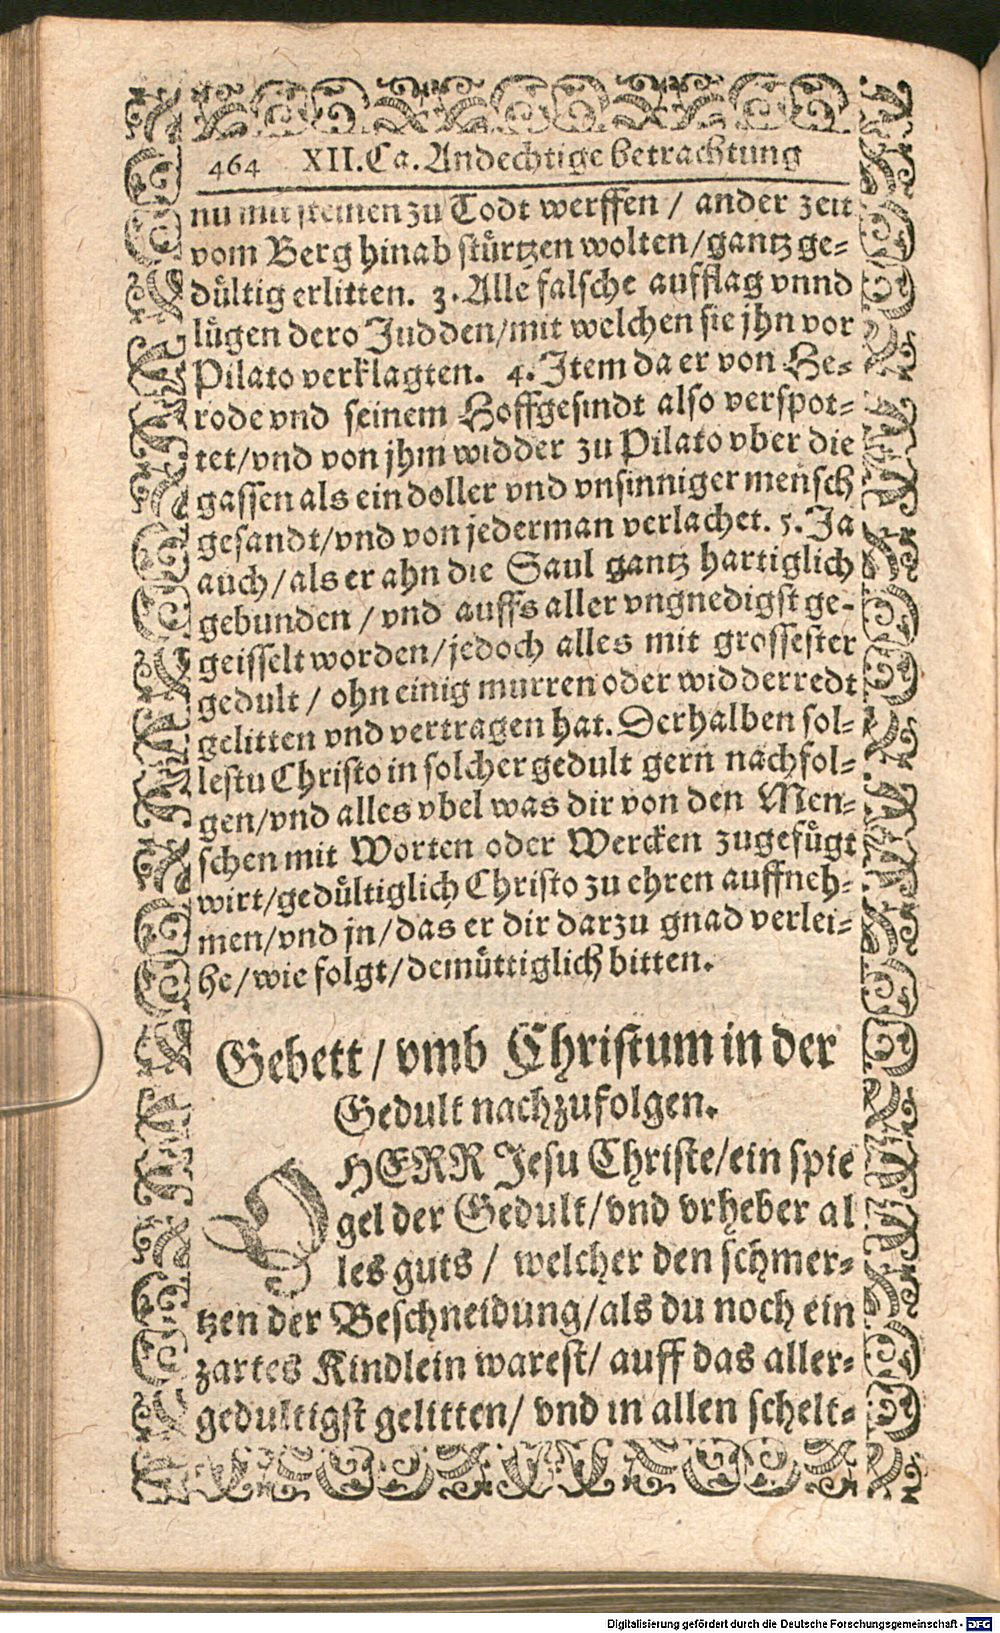 464 XII.Ca. Andechtige betrachtung
nu mit steinen zu Todt werffen / ander zeit
vom Berg hinab stürtzen wolten/gantz ge-
dültig erlitten. 3. Alle falsche aufflag vnnd
lügen dero Judden/mit welchen sie jhn vor
Pilato verklagten. 4. Item da er von He-
rode vnd seinem Hoffgesindt also verspot-
tet/vnd von jhm widder zu Pilato vber die
gassen als ein doller vnd vnsinniger mensch
gesandt/vnd von jederman verlachet. 5. Ja
auch/als er ahn die Saul gantz hartiglich
gebunden / vnd auffs aller vngnedigst ge-
geisselt worden/jedoch alles mit grossester
gedult / ohn einig murren oder widderredt
gelitten vnd vertragen hat. Derhalben sol-
lestu Christo in solcher gedult gern nachfol-
gen/vnd alles vbel was dir von den Men-
schen mit Worten oder Wercken zugefügt
wirt/gedültiglich Christo zu ehren auffneh-
men/vnd jn/das er dir darzu gnad verlei-
he/wie folgt/demüttiglich bitten.
Gebett / vmb Christum in der
Gedult nachzufolgen.
O HERR Jesu Christe/ein spie
gel der Gedult/vnd vrheber al
les guts / welcher den schmer-
tzen der Beschneidung/als du noch ein
zartes Kindlein warest/ auff das aller-
gedultigst gelitten/ vnd in allen schelt-
Digitalisierung gefördert durch die Deutsche Forschungsgemeinschaft - DFG